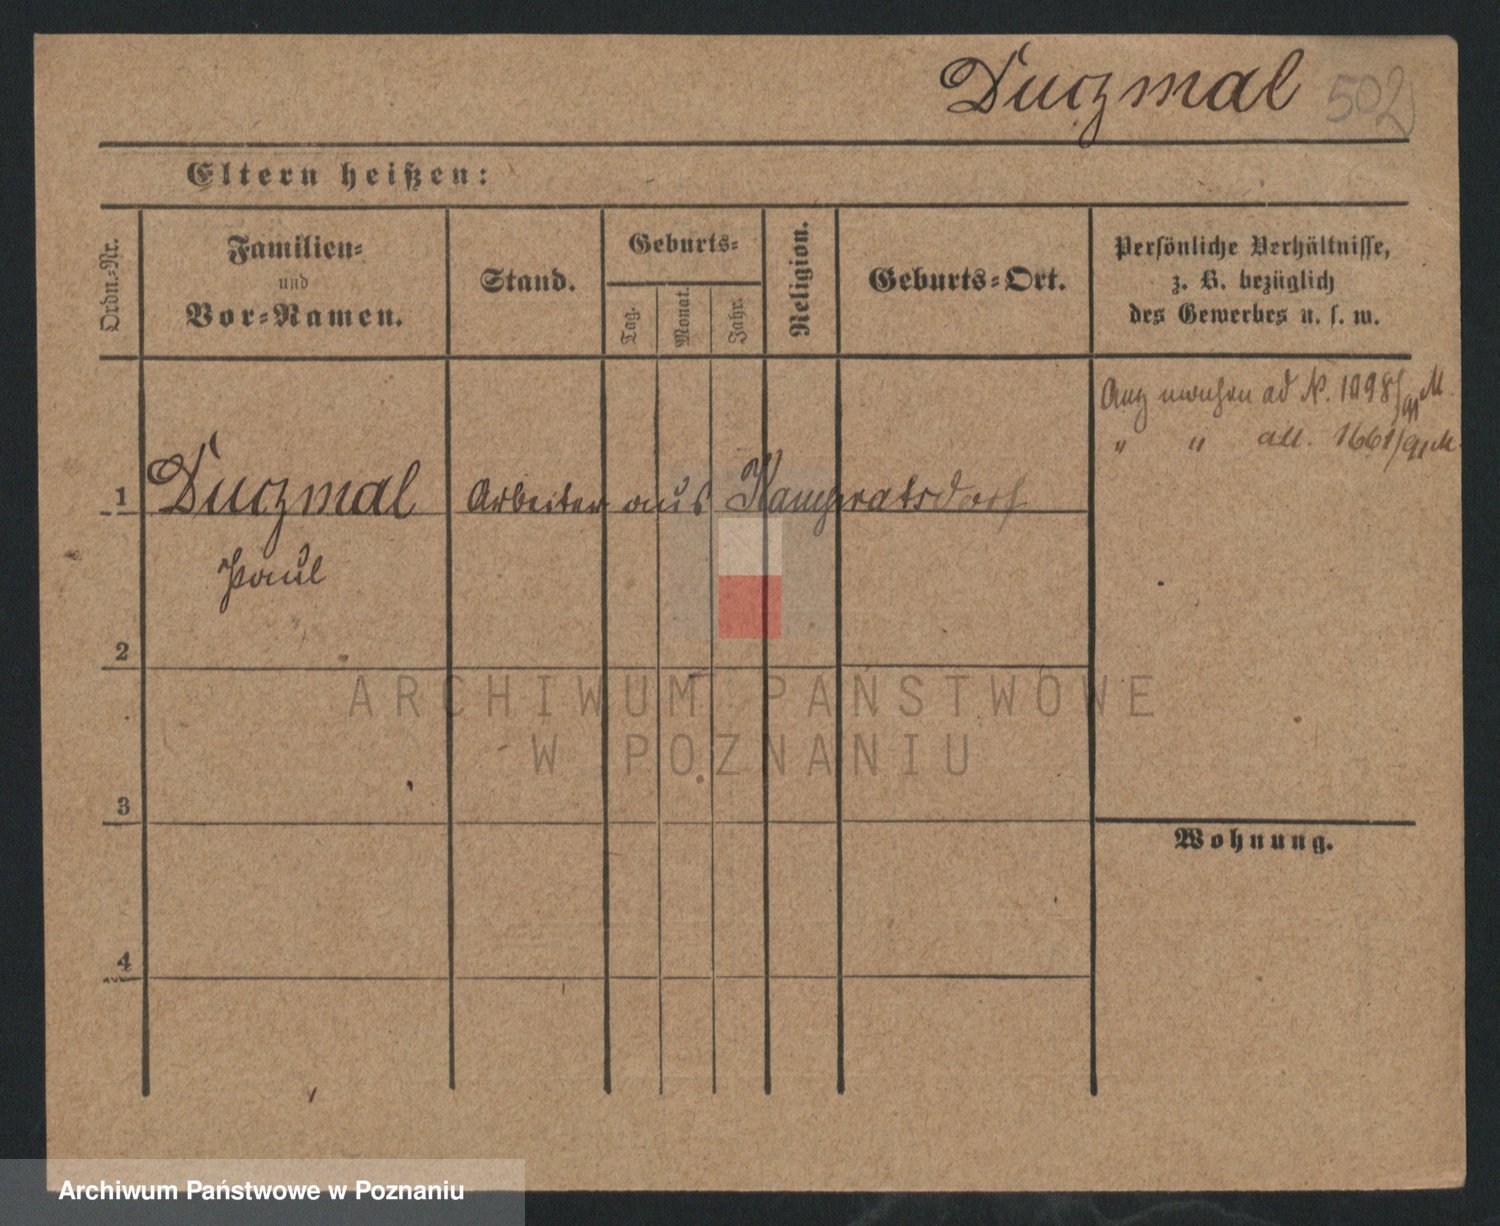 Duczmal 502
Eltern heißen:
Ordn.-Nr.
Familien-
und
Vor-Namen.
Stand.
Geburts-
Tag.
Monat.
Jahr.
Religion.
Geburts-Ort.
Persönliche Verhältnisse,
z. B. bezüglich
des Gewerbes u. s. w.
ad N. 1098/91 M.
" " 1661/91 M.
1 Duczmal Arbeiter aus
Paul
2
3
4
Wohnung.
ARCHIWUM PAŃSTWOWE
W POZNANIU
Archiwum Państwowe w Poznaniu